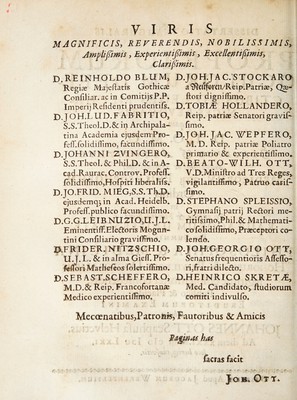 VIRIS
MAGNIFICIS, REVERENDIS, NOBILISSIMIS,
Amplissimis, Experientissimis, Excellentissimis,
Clarissimis.
D. REINHOLDO BLUM,
Regiæ Majestatis Gothicæ
Consiliar. ac in Comitijs P.P.
Imperij Residenti prudentiss.
D. JOH. LUD. FABRITIO,
S.S. Theol. D. & in Archipala-
tina Academia ejusdem Pro-
fess. solidissimo, facundissimo.
D. JOHANNI ZVINGERO,
S.S. Theol. & Phil. D. & in A-
cad. Raurac. Controv. Profess.
solidissimo, Hospiti liberaliss.
D. JO. FRID. MIEGS. S Th. D.
ejusdemq; in Acad. Heidelb.
Profess. publico facundissimo.
D. G. G. LEIBNUZIO, U.J.L.
Eminentiss. Electoris Mogun-
tini Consiliario gravissimo.
D. FRIDER. NITZSCHIO,
U.J.L. & in alma Giess. Pro-
fessori Matheseos solertissimo.
D. SEBAST. SCHEFFERO,
M.D. & Reip. Francofortanæ
Medico experientissimo,
D. JOH. JAC. STOCKARO
Reip. Patriæ, Quæ-
stori dignissimo.
D. TOBIÆ HOLLANDERO,
Reip. patriæ Senatori gravis-
simo.
D. JOH. JAC. WEPFERO,
M.D. Reip. patriæ Poliatro
primario & experientissimo.
D. BEATO-WILH. OTT,
V.D. Ministro ad Tres Reges,
vigilantissimo, Patruo caris-
simo.
D. STEPHANO SPLEISSIO,
Gymnasij patrij Rectori me-
ritissimo, Phil. & Mathemati-
co solidissimo, Præceptori co-
lendo.
D. JOH. GEORGIO OTT,
Senatus frequentioris Assesso-
ri, fratri dilecto.
D. HEINRICO SKRETÆ,
Med. Candidato, studiorum
comiti indivulso.
Mecœnatibus, Patronis, Fautoribus & Amicis
Paginas has
sacras facit
JOH. OTT.